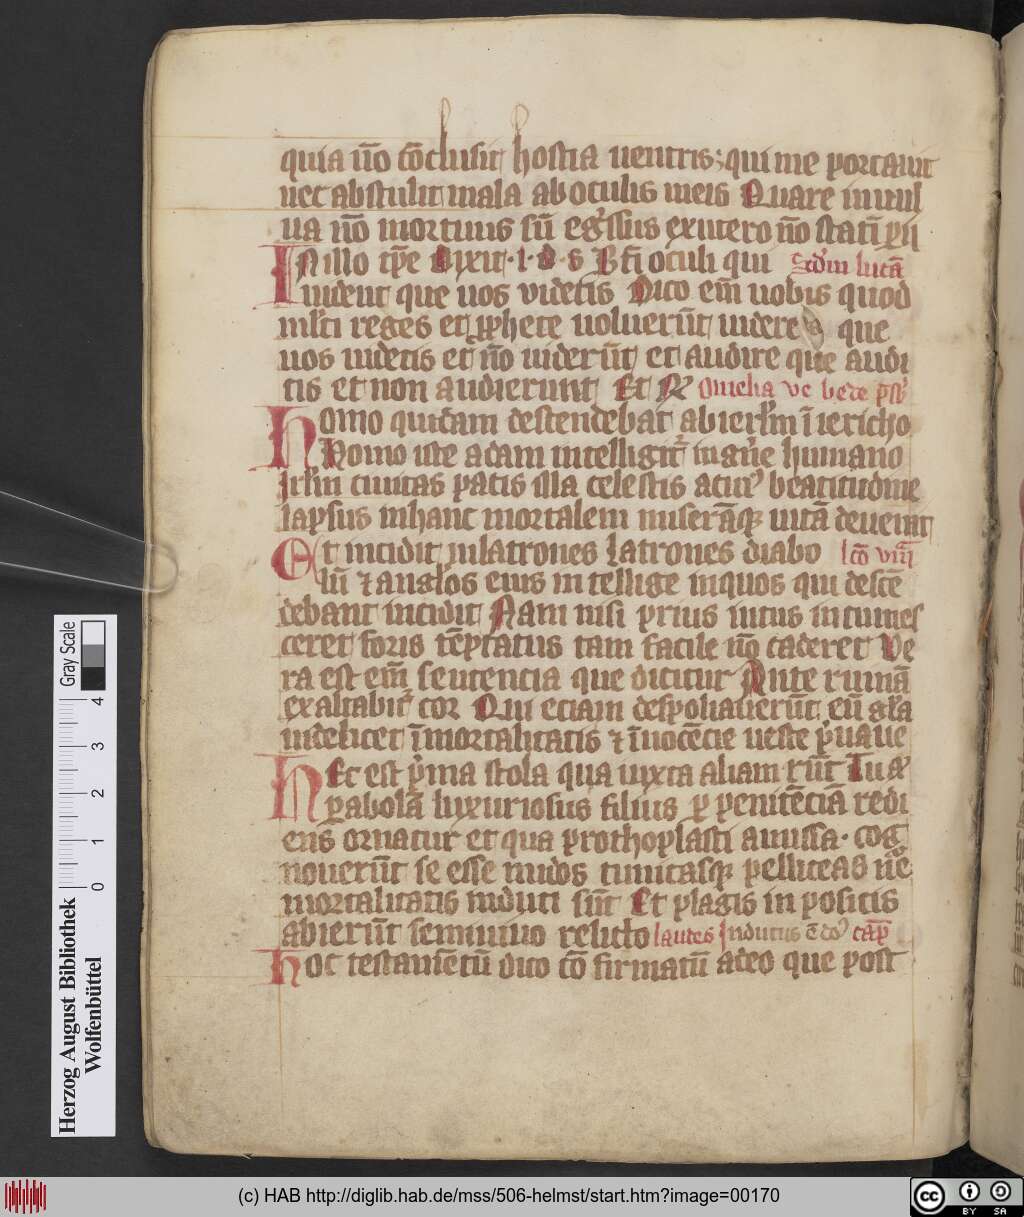 quia n̄o cōclusit hostia uentris; qui me portauit
nec abstulit mala ab oculis meis Quare in uul
ua nō mortuus sū egr̄ssus ex utero nō statī p̄ii
In illo tp̄e Dixit · i · d · s Bt̄i oculi qui Scd̄m lucā
uident que uos videtis Dico em̄ uobis quod
ml̓ti reges et ꝓphete uoluerūt uidere que
uos uidetis et nō uiderūt et audire que audi
tis et non audierunt Et R̄ Omelia ve bede
Homo quidam descendebat ab ierl̓m ī iericho
Homo iste adam intelligit᷑ in gn̄e humano
Irl̓m ciuitas pacis illa celestis a cui᷒ beatitudine
lapsus in hanc mortalem miserāqꝫ uitā deuenit
Et incidit in latrones Latrones diabo lc̄o viii
lū ⁊ anglos eius intellige in quos qui descē
debant incidit Nam nisi prius intus intumes
ceret foris tēptatus tam facile nō caderet Ve
ra est em̄ sentencia que dicitur Ante ruinā
exaltabit᷑ cor Qui eciam despoliauerūt eū gr̄a
uidelicet īmortalitatis ⁊ īnocēcie ueste p̓uaue
Hec est p̓ma stola qua iuxta aliam rūt
ꝑabolā luxuriosus filius ꝑ penitēciā redi
ens ornatur et qua prothoplasti amissa · cog
nouerūt se esse nudos tunicasqꝫ pelliceas
mortalitatis induti sūt Et plagis in positis
abierūt seminiuo relicto laudes Indutus ē do᷒ cap̄
Hoc testamētū dico cōfirmatū a deo que post
Gray Scale
4
3
2
1
0
Herzog August Bibliothek
Wolfenbüttel
(c) HAB http://diglib.hab.de/mss/506-helmst/start.htm?image=00170
cc BY SA